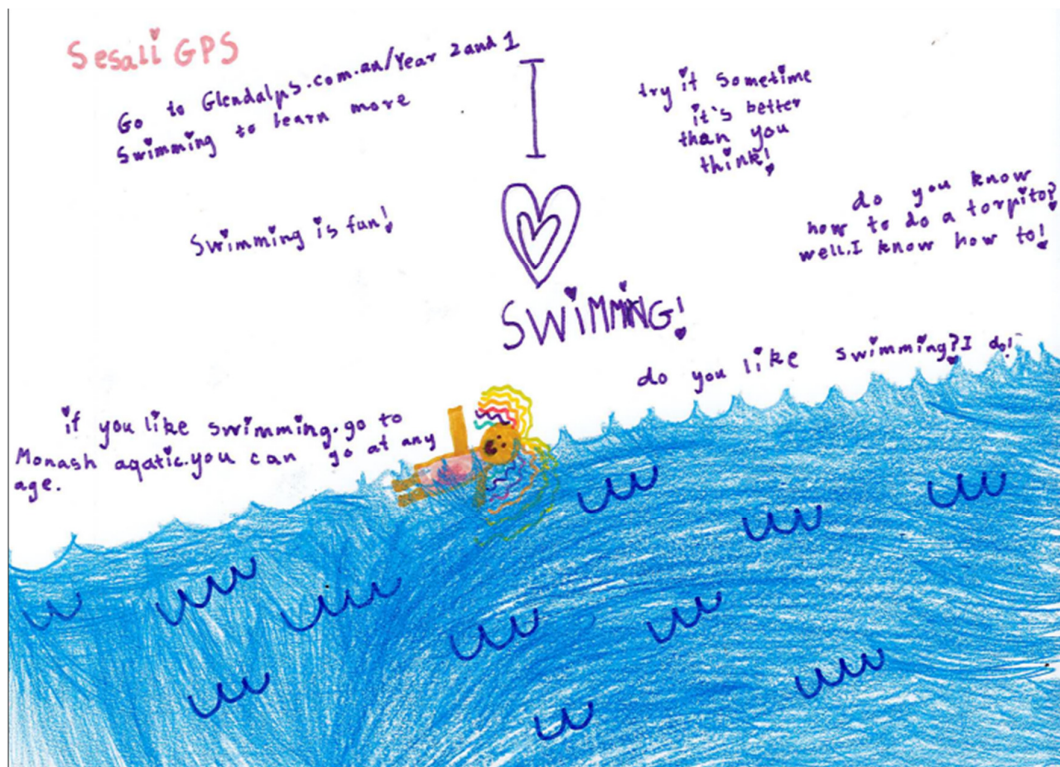 Sesali GPS
Go to Glendalps.com.au/Year 2 and 1
Swimming to learn more
I
SWiMMiNG!
try it sometime
it's better
than you
think!
do you know
how to do a torpito?
well.I know how to!
Swimming is fun!
do you like swimming?I do!
if you like swimming.go to
Monash aqatic.you can go at any
age.